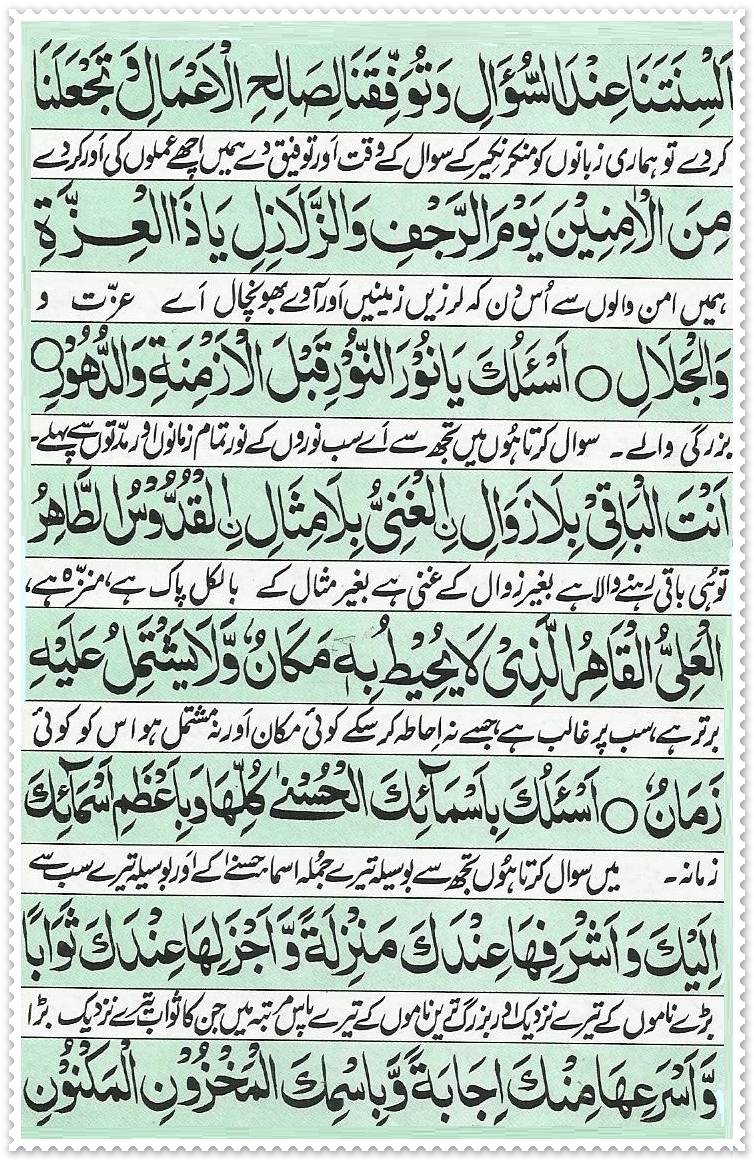 اَلْسِنَتَنَا عِنْدَ السُّؤَالِ وَتُوَفِّقَنَا لِصَالِحِ الْاَعْمَالِ وَ تَجْعَلَنَا
کر دے تو ہماری زبانوں کو منکر نکیر کے سوال کے وقت اَور توفیق دے ہمیں اچھے عملوں کی اَور کر دے
مِنَ الْاٰمِنِیْنَ یَوْمَ الرَّجْفِ وَالزَّلَازِلِ یَا ذَا الْعِزَّةِ
ہمیں امن والوں سے اُس دن کہ لرزیں زمینیں اَور آوے بھونچال اَے عزّت و
وَالْجَلَالِ ○ اَسْئَلُكَ یَا نُوْرَ النُّوْرِ قَبْلَ الْاَزْمِنَةِ وَالدُّهُوْرِ ○
بزرگی والے ۔ سوال کرتا ہُوں میں تجھ سے اَے سب نوروں کے نور تمام زمانوں اور مدّتوں سے پہلے ۔
اَنْتَ الْبَاقِیْ بِلَا زَوَالٍ نِ الْغَنِیُّ بِلَا مِثَالٍ نِ الْقُدُّوْسُ الطَّاهِرُ
تو ہی باقی رہنے والا ہے بغیر زوال کے غنی ہے بغیر مثال کے بالکل پاک ہے، منزّہ ہے،
الْعَلِیُّ الْقَاهِرُ الَّذِیْ لَا یُحِیْطُ بِهٖ مَكَانٌ وَّلَا یَشْتَمِلُ عَلَیْهِ
برتر ہے، سب پر غالب ہے، جسے نہ احاطہ کر سکے کوئی مکان اَور نہ مشتمل ہو اس کو کوئی
زَمَانٌ ○ اَسْئَلُكَ بِاَسْمَآئِكَ الْحُسْنٰی كُلِّهَا وَبِاَعْظَمِ اَسْمَآئِكَ
زمانہ ۔ میں سوال کرتا ہُوں تجھ سے بوسیلہ تیرے جملہ اسماءِ حسنےٰ کے اَور بوسیلہ تیرے سب سے
اِلَیْكَ وَ اَشْرَفِهَا عِنْدَكَ مَنْزِلَةً وَّ اَجْزَلِهَا عِنْدَكَ ثَوَابًا
بڑے ناموں کے تیرے نزدیک اور بزرگ ترین ناموں کے تیرے پاس مرتبہ میں جن کا ثواب تیرے نزدیک بڑا
وَّ اَسْرَعِهَا مِنْكَ اِجَابَةً وَّبِاسْمِكَ الْمَخْزُوْنِ الْمَكْنُوْنِ